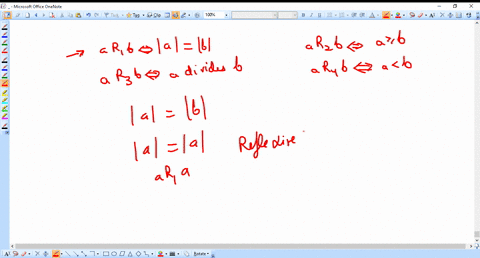 - Microsoft Office OneNote
100%
→ aR₁b ⇔ |a| = |b| aR₂b ⇔ a≥b
aR₃b ⇔ a divides b aR₄b ⇔ a<b
|a| = |b|
|a| = |a| Reflexive
aR₁a
Rotate